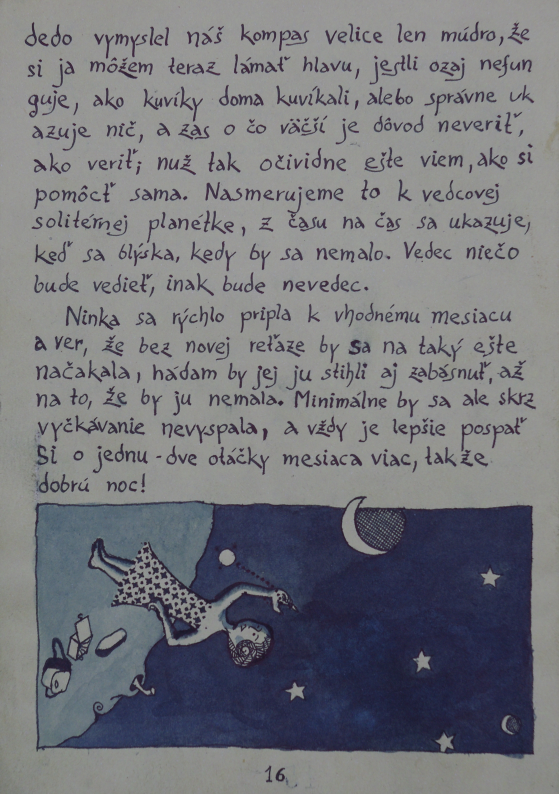 dedo vymyslel náš kompas velice len múdro, že
si ja môžem teraz lámať hlavu, jestli ozaj nefun
guje, ako kuvíky doma kuvíkali, alebo správne uk
azuje nič, a zas o čo väčší je dôvod neveriť,
ako veriť; nuž tak očividne ešte viem, ako si
pomôcť sama. Nasmerujeme to k vedcovej
solitérnej planétke, z času na čas sa ukazuje,
keď sa blýska, kedy by sa nemalo. Vedec niečo
bude vedieť, inak bude nevedec.
Ninka sa rýchlo pripla k vhodnému mesiacu
a ver, že bez novej reťaze by sa na taký ešte
načakala, hádam by jej ju stihli aj zabásnuť, až
na to, že by ju nemala. Minimálne by sa ale skrz
vyčkávanie nevyspala, a vždy je lepšie pospať
si o jednu-dve otáčky mesiaca viac, takže
dobrú noc!
16